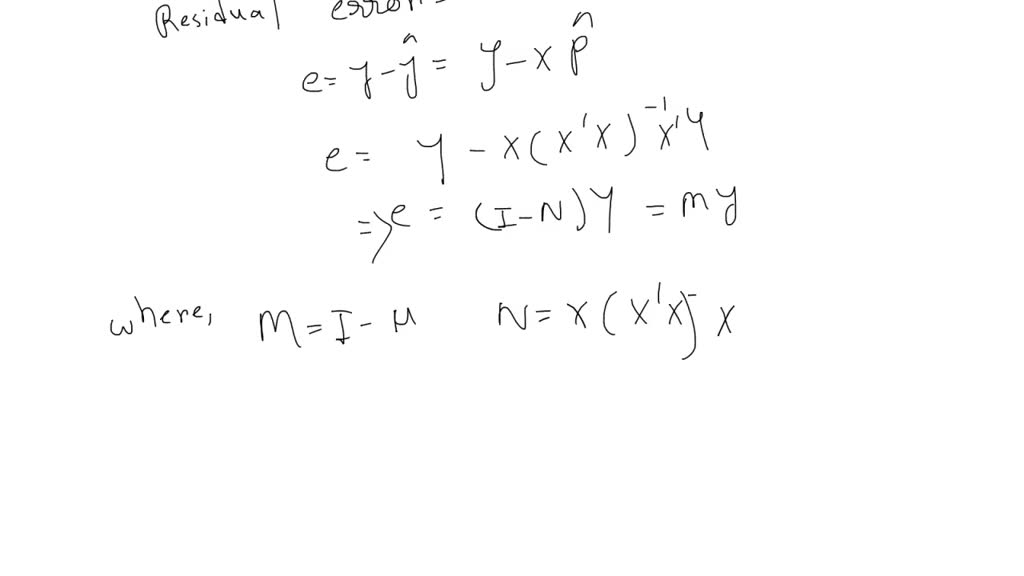 Residual error
e = y - ŷ = y - x p̂
e = y - x(x'x)⁻¹x'y
=> e = (I - N)y = my
where, M = I - μ N = x(x'x)⁻ x